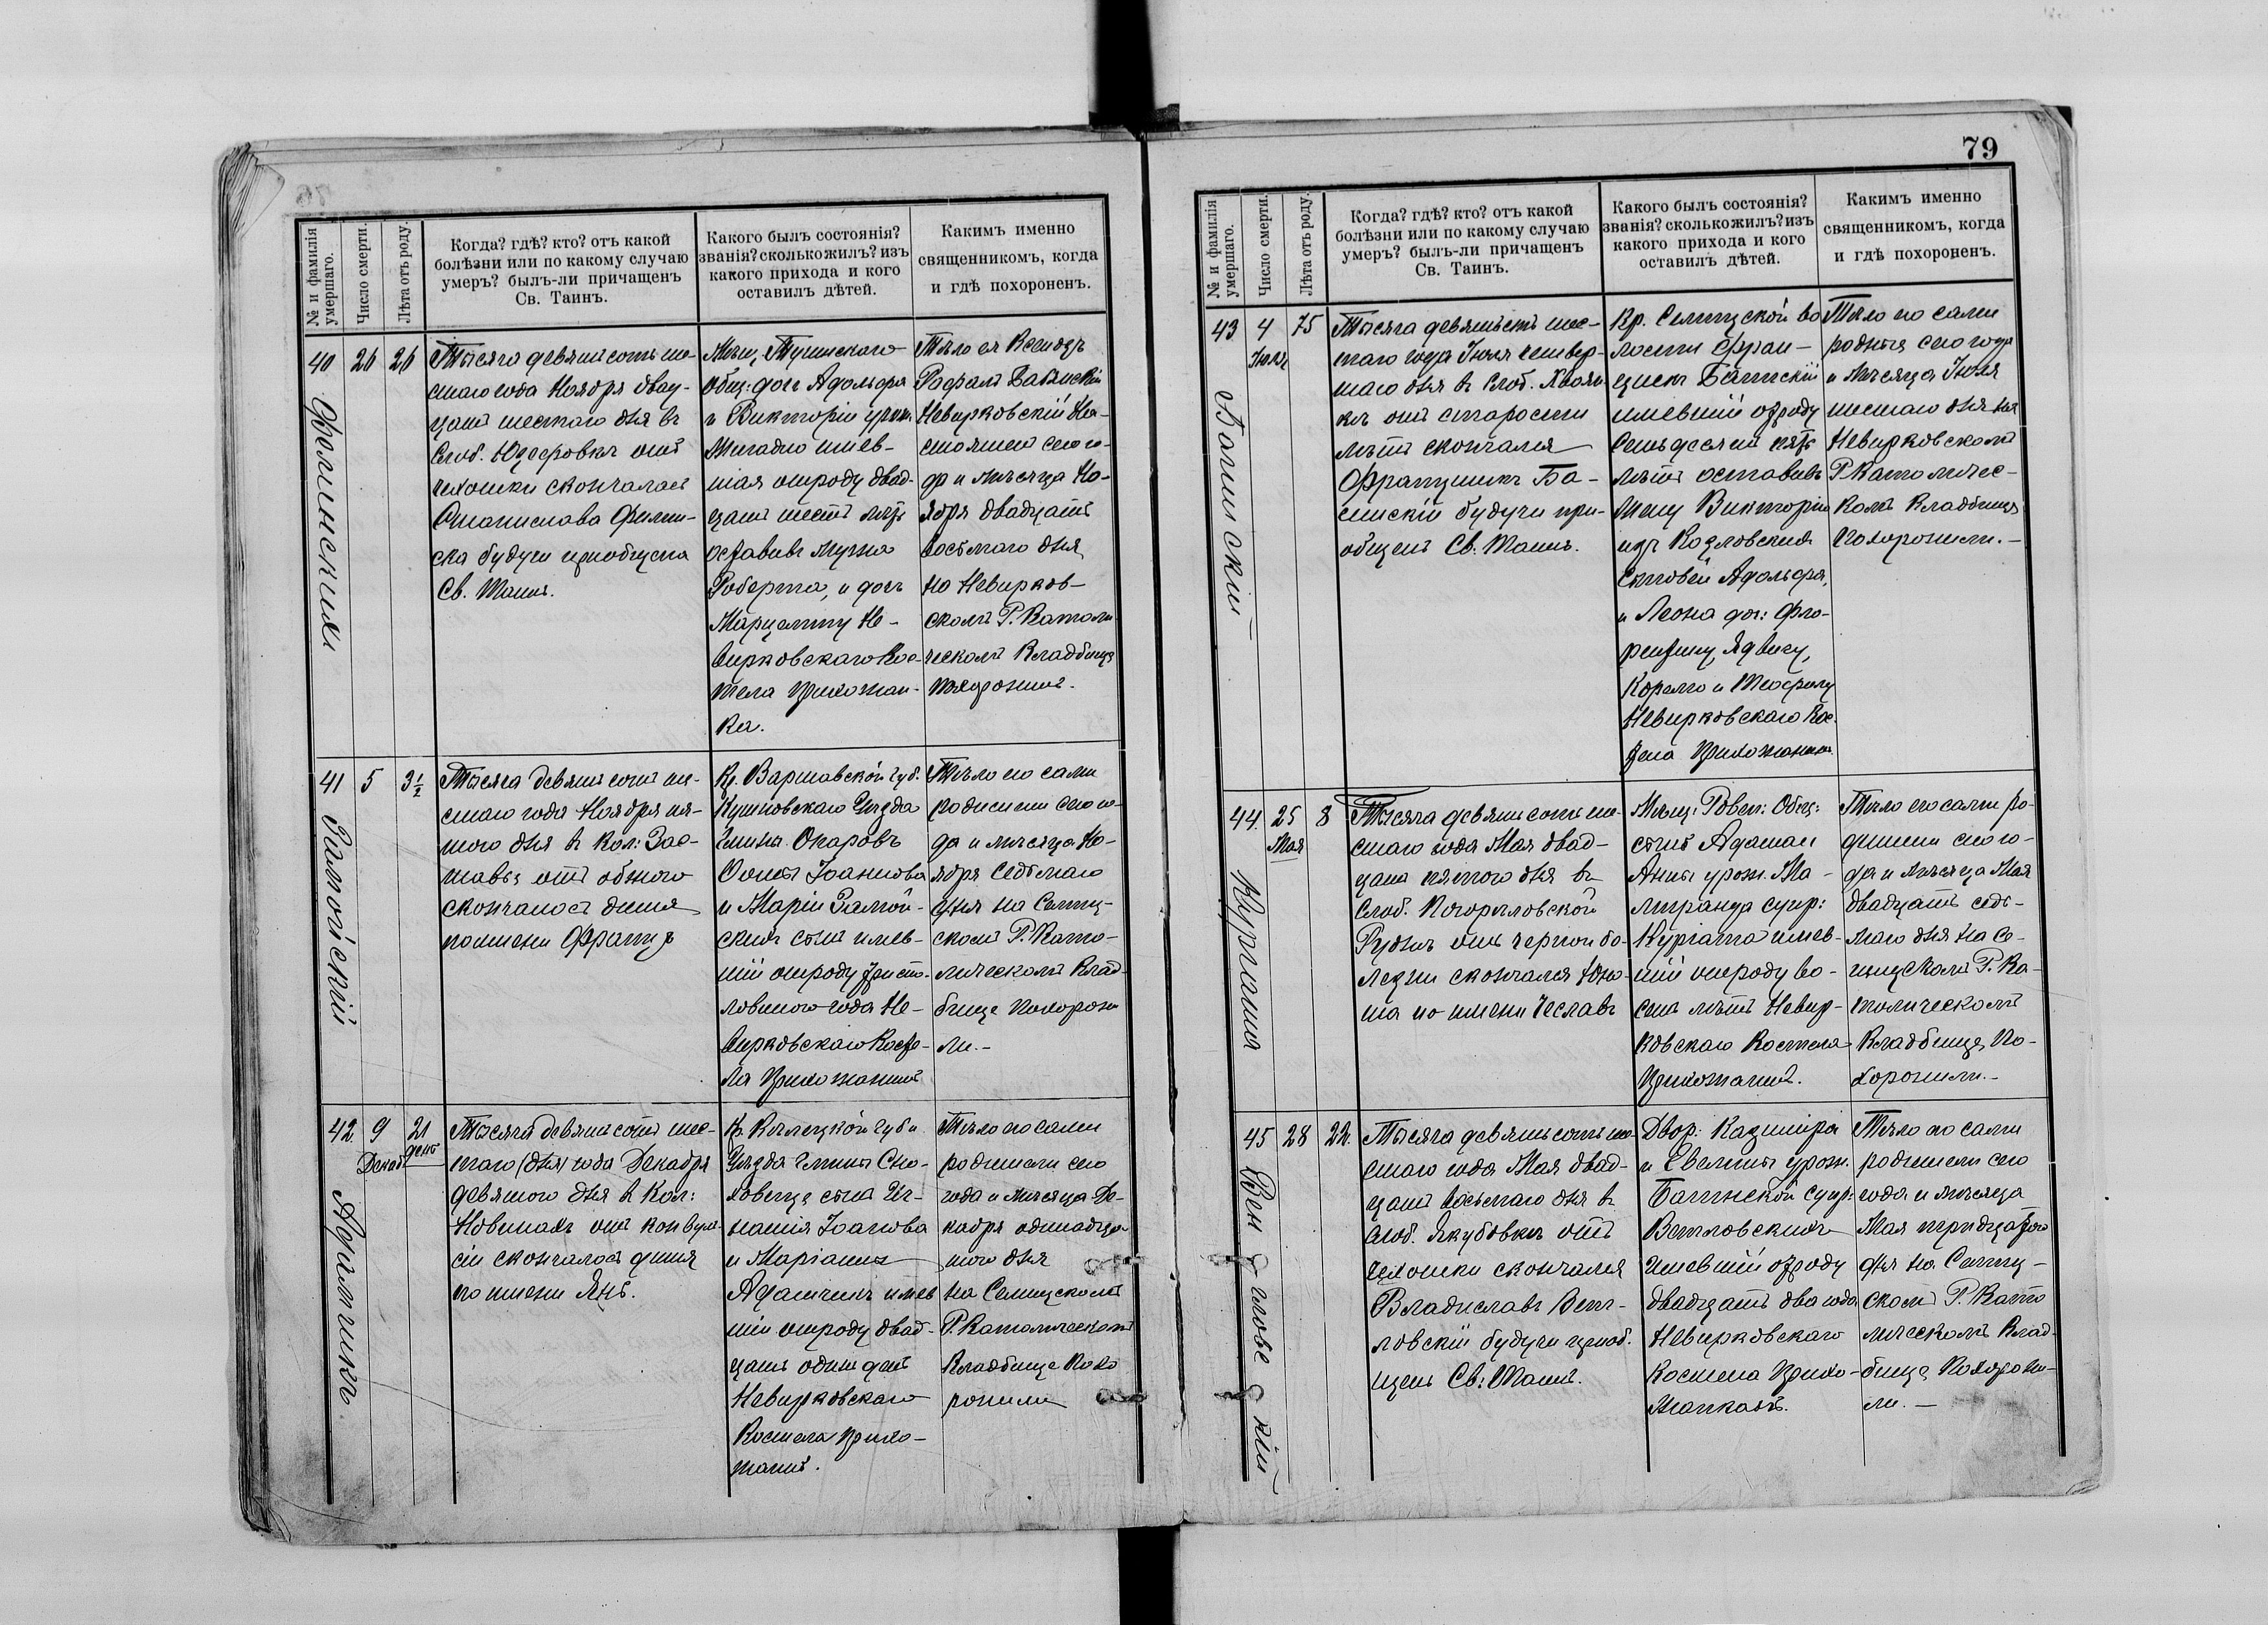 79
№ и фамилія умершаго.
Число смерти.
Лѣта отъ роду.
Когда? гдѣ? кто? отъ какой
болѣзни или по какому случаю
умеръ? былъ-ли причащенъ
Св. Таинъ.
Какого былъ состоянія?
званія? сколько жилъ? изъ
какого прихода и кого
оставилъ дѣтей.
Каким именно
священникомъ, когда
и гдѣ похороненъ.
40
26
26
Филинскихъ
Тысяча девятьсотъ ше-
стаго года Ноября двад-
цать шестаго дня въ
Слоб. Юзефовкѣ отъ
чахотки скончалась
Станислава Филин-
ска будучи приобщена
Св. Таинъ.
Общ: дочь Адольфа
и Викторіи урожд.
имев-
шая отроду двад-
цать шесть лѣтъ
оставивъ мужа
Роберта, и дочь
Марцелину Не-
вирковскаго Кос-
тела прихожан-
ка.
Тѣло ея Ксендзъ
Рафалъ
Невирковскій На-
стоятель сего го-
да и мѣсяца Но-
ября двадцать
восьмаго дня
на Невирков-
скомъ Р. Католи
ческомъ Кладбищѣ
похоронилъ.
41
5
3½
Замойскій
Тысяча девятьсотъ ше-
стаго года Ноября пя-
таго дня в Кол: Зас-
тавье отъ
скончалось дитя
по имени Францъ
Кр. Варшавской губ.
Кутновскаго Уѣзда
Гмины Опоровъ
Іоаннова
и Маріи Замой-
скихъ сынъ имев-
шій отроду три съ по-
ловиною года Не-
вирковскаго Косте-
ла прихожанинъ
Тѣло его сами
родители сего го-
да и мѣсяца Но-
ября седьмаго
дня на Селищ-
скомъ Р. Като-
лическомъ Клад-
бище похорони
ли.-
42
9
Декаб
21
день
Адамчикъ
Тысяча девятьсотъ шес-
таго (дня) года Декабря
девятого дня в Кол:
Новинахъ отъ конвуль-
сіи скончалось дитя
по имени Янъ.
Кр. Кѣлецкой губ и
Уѣзда Гмины Сно-
ховице сынъ Иг-
натія Іоаннова
и Маріанны
Адамчикъ имев
шій отроду двад-
цать одинъ день
Невирковскаго
Костела прихо-
жанинъ.
Тѣло его сами
родители сего
года и мѣсяца Де-
кабря одинадца-
таго дня
на Селищскомъ
Р. Католическомъ
Кладбище похо
ронили
№ и фамилія умершаго.
Число смерти.
Лѣта отъ роду.
Когда? гдѣ? кто? отъ какой
болѣзни или по какому случаю
умеръ? былъ-ли причащенъ
Св. Таинъ.
Какого былъ состоянія?
званія? сколько жилъ? изъ
какого прихода и кого
оставилъ дѣтей.
Какимъ именно
священникомъ, когда
и гдѣ похороненъ.
43
4
Іюля
75
Тысяча девятьсотъ шес-
таго года Іюля четвер-
таго дня въ Слоб.
отъ старости
лѣтъ скончался
Францишекъ Ба-
будучи при-
общенъ Св. Таинъ.
Кр. Селищской во
лости Фран-
цишекъ
имевшій отроду
семьдесятъ пять
лѣтъ оставивъ
жену Викторію
изъ Козловскихъ
сыновей Адольфа,
и Леона доч: Фло-
рентину, Ядвигу,
и Теофилу
Невирковскаго Кос-
тела прихожанинъ
Тѣло его сами
родныя сего года
и мѣсяца Іюля
шестаго дня на
Невирковскомъ
Р Католичес-
комъ Кладбище
похоронили.-
44.
25
Мая
8
Куріата
Тысяча девятьсотъ ше-
стаго года Мая двад-
цать пятого дня въ
Слоб. Погорѣловской
Руднѣ отъ черной бо-
лезни скончался юно-
ша по имени Чеславъ
Мѣщ: Ровен: Общ:
сынъ Адама и
Анны урож. Ма-
супр:
Куріата имев-
шій отроду во-
семь лѣтъ Невир-
ковскаго Костела
прихожанинъ.
Тѣло его сами ро-
дители сего го-
да и мѣсяца Мая
двадцать седь-
маго дня на Се-
лищскомъ Р. Ка-
толическомъ
Кладбище, по-
хоронили.-
45
28
22.
Тысяча девятьсотъ ше-
стаго года Мая двад-
цать восьмаго дня в
слоб. Якубовкѣ отъ
чахотки скончался
Владиславъ Венг-
ловскій будучи приоб-
щенъ Св: Таинъ.
Двор: Казиміра
и Евелины урож.
супр:
Венгловскихъ
имевшій отроду
двадцать два года
Невирковскаго
Костела прихо-
жанинъ.
Тѣло его сами
родители сего
года и мѣсяца
Мая тридцатого
дня на Селищ-
скомъ Р. Като
лическомъ Клад-
бище, похорони-
ли. -